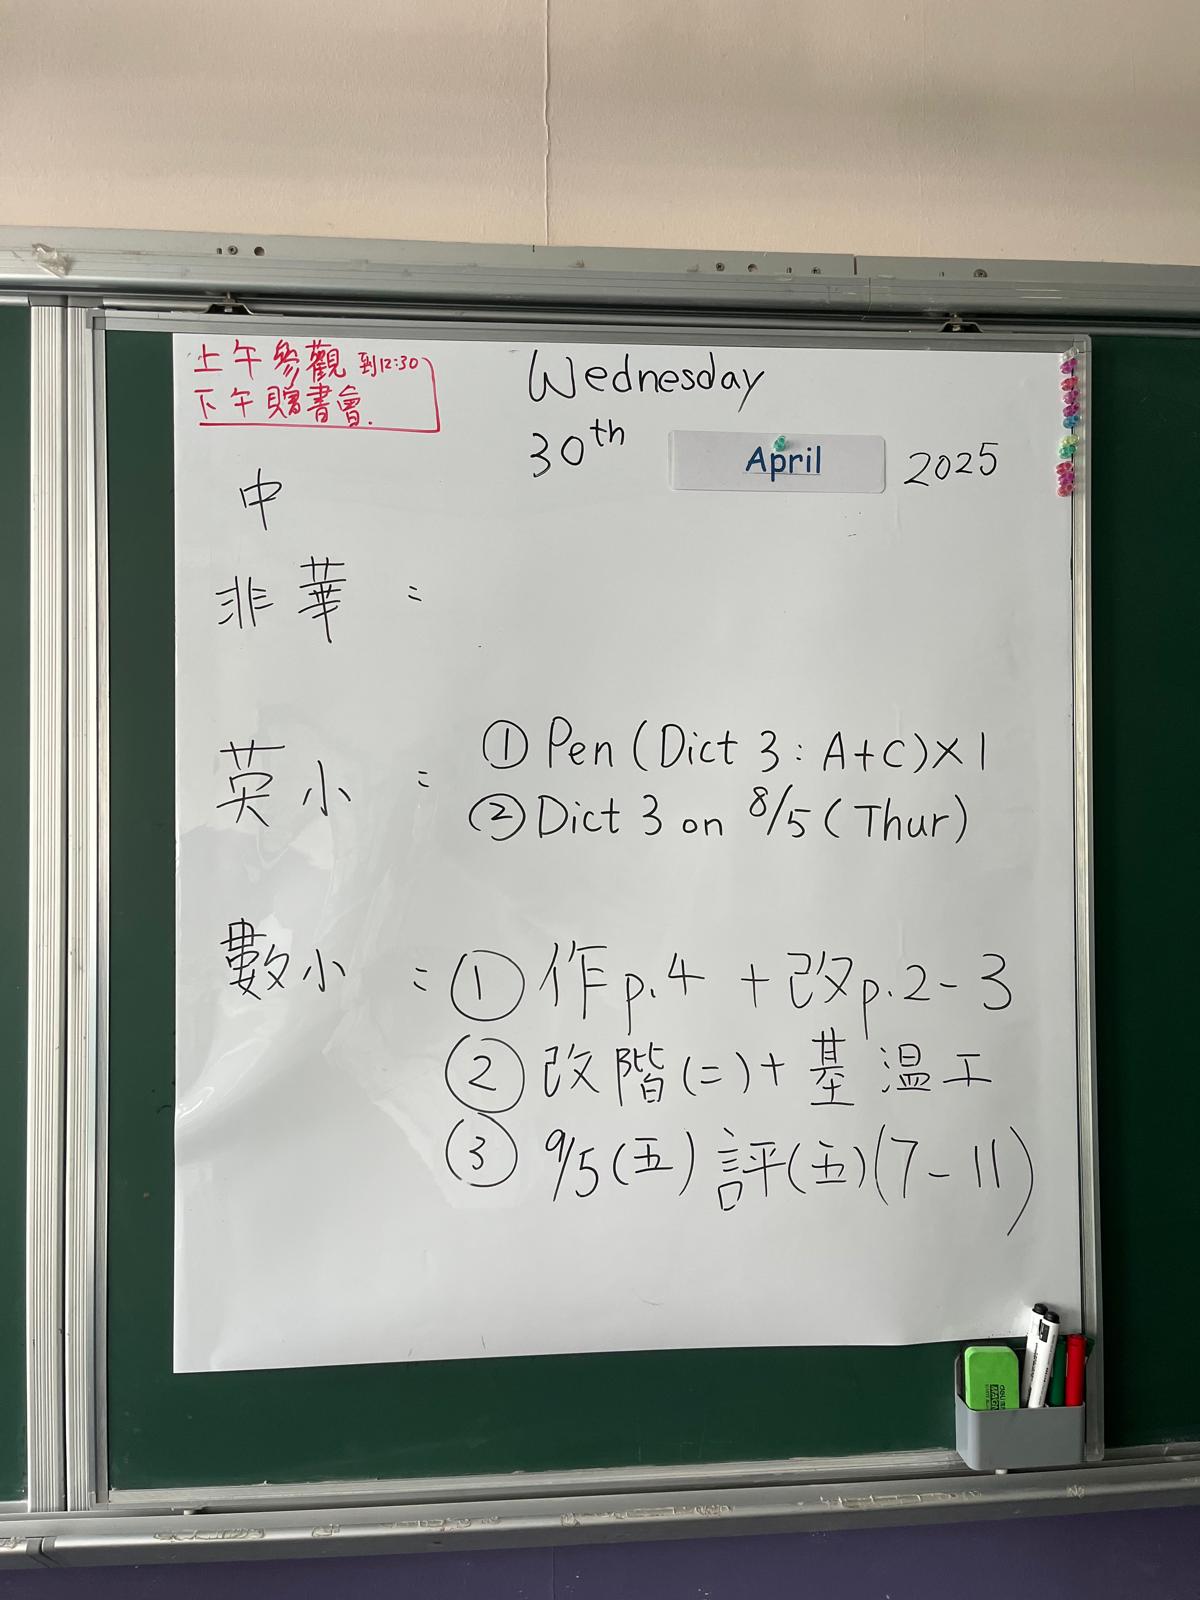 上午參觀 到12:30
下午贈書會.
Wednesday
30th April 2025
中
非華 :
英小 : ① Pen (Dict 3 : A+C)×1
② Dict 3 on 8/5 (Thur)
數小 : ① 作p.4 + 改p.2-3
② 改階(二)+基溫工
③ 9/5(五) 評(五)(7-11)